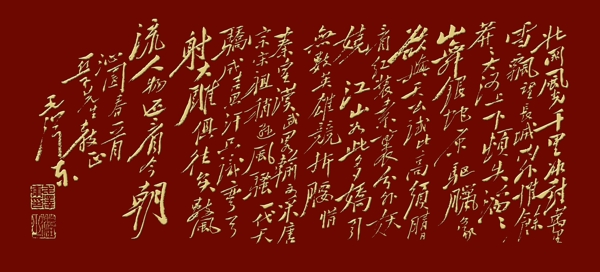 北國風光千里冰封萬里
雪飄望長城內外惟餘
莽莽大河上下頓失滔滔
山舞銀蛇原驅臘象
欲與天公試比高須晴
日看紅裝素裹分外妖
嬈 江山如此多嬌引
無數英雄競折腰惜
秦皇漢武略輸文采唐
宗宋祖稍遜風騷一代天
驕成吉思汗只識彎弓
射大雕俱往矣數風
流人物還看今朝
沁園春一首
亞子先生教正
毛澤東